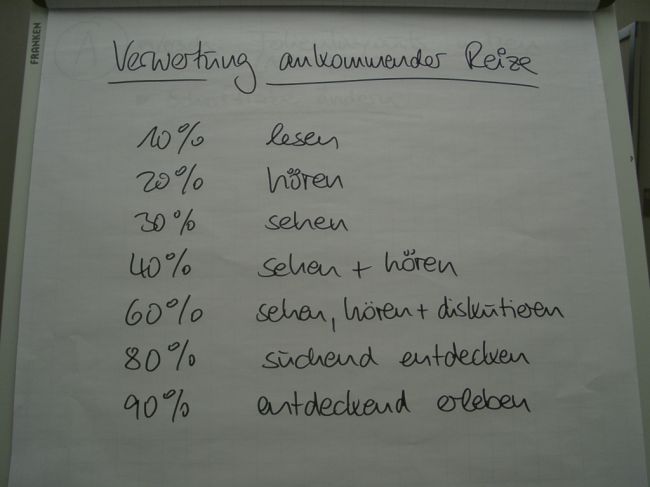 FRANKEN
Verwertung ankommender Reize
10% lesen
20% hören
30% sehen
40% sehen + hören
60% sehen, hören + diskutieren
80% suchend entdecken
90% entdeckend erleben